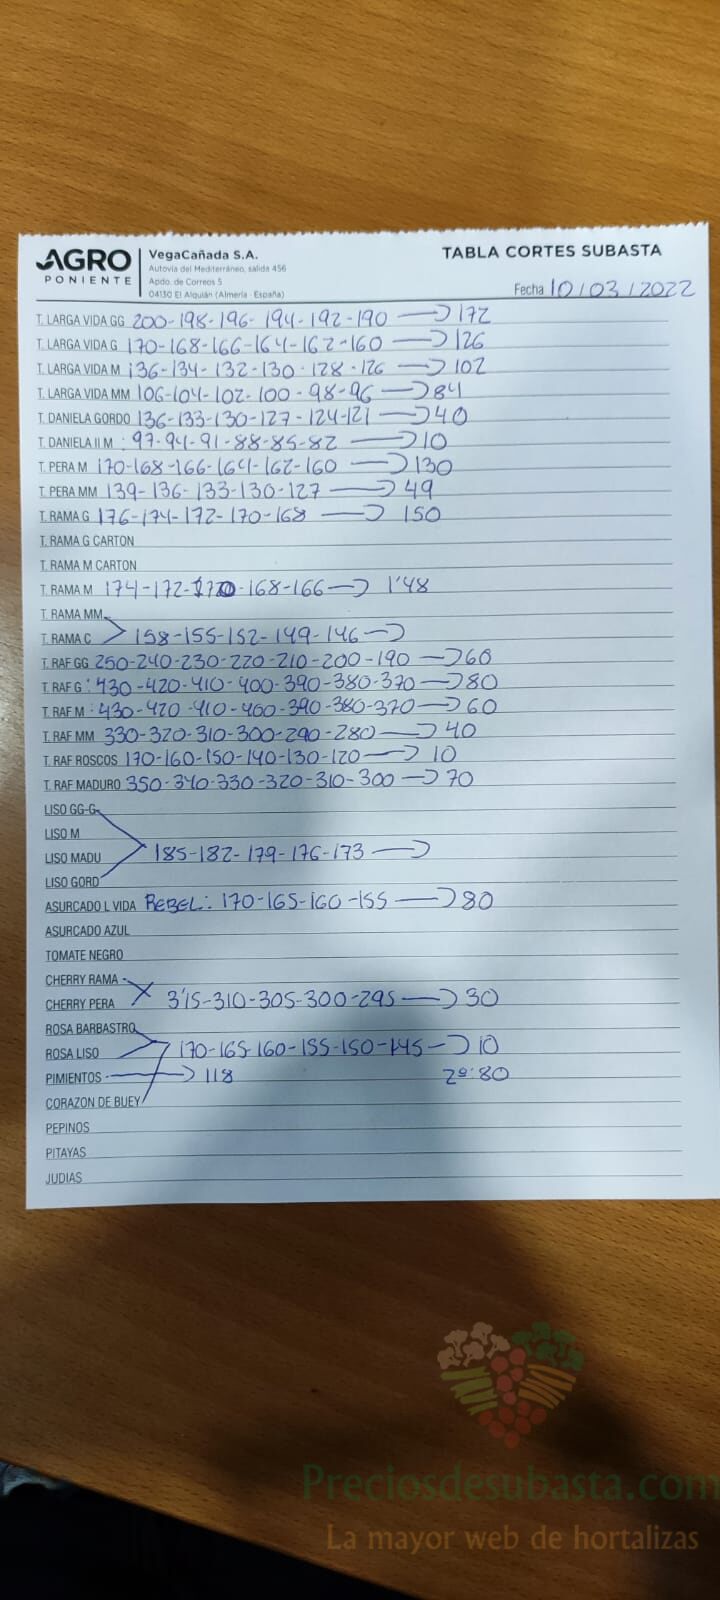 AGRO
PONIENTE
VegaCañada S.A.
Autovía del Mediterráneo, salida 456
Apdo. de Correos 5
04130 El Alquián (Almería - España)
TABLA CORTES SUBASTA
Fecha 10/03/2022
T. LARGA VIDA GG 200-198-196-194-192-190 → 172
T. LARGA VIDA G 170-168-166-164-162-160 → 126
T. LARGA VIDA M 136-134-132-130-128-126 → 102
T. LARGA VIDA MM 106-104-102-100-98-96 → 84
T. DANIELA GORDO 136-133-130-127-124-121 → 40
T. DANIELA II M : 97-94-91-88-85-82 → 10
T. PERA M 170-168-166-164-162-160 → 130
T. PERA MM 139-136-133-130-127 → 49
T. RAMA G 176-174-172-170-168 → 150
T. RAMA G CARTON
T. RAMA M CARTON
T. RAMA M 174-172-170-168-166 → 1'48
T. RAMA MM
T. RAMA C 158-155-152-149-146 →
T. RAF GG 250-240-230-220-210-200-190 → 60
T. RAF G : 430-420-410-400-390-380-370 → 80
T. RAF M : 430-420-410-400-390-380-370 → 60
T. RAF MM 330-320-310-300-290-280 → 40
T. RAF ROSCOS 170-160-150-140-130-120 → 10
T. RAF MADURO 350-340-330-320-310-300 → 70
LISO GG-G
LISO M
LISO MADU 185-182-179-176-173 →
LISO GORD
ASURCADO L VIDA REBEL: 170-165-160-155 → 80
ASURCADO AZUL
TOMATE NEGRO
CHERRY RAMA
CHERRY PERA 3'15-310-305-300-295 → 30
ROSA BARBASTRO
ROSA LISO 170-165-160-155-150-145 → 10
PIMIENTOS → 118 2º:80
CORAZON DE BUEY
PEPINOS
PITAYAS
JUDIAS
Preciosdesubasta.com
La mayor web de hortalizas